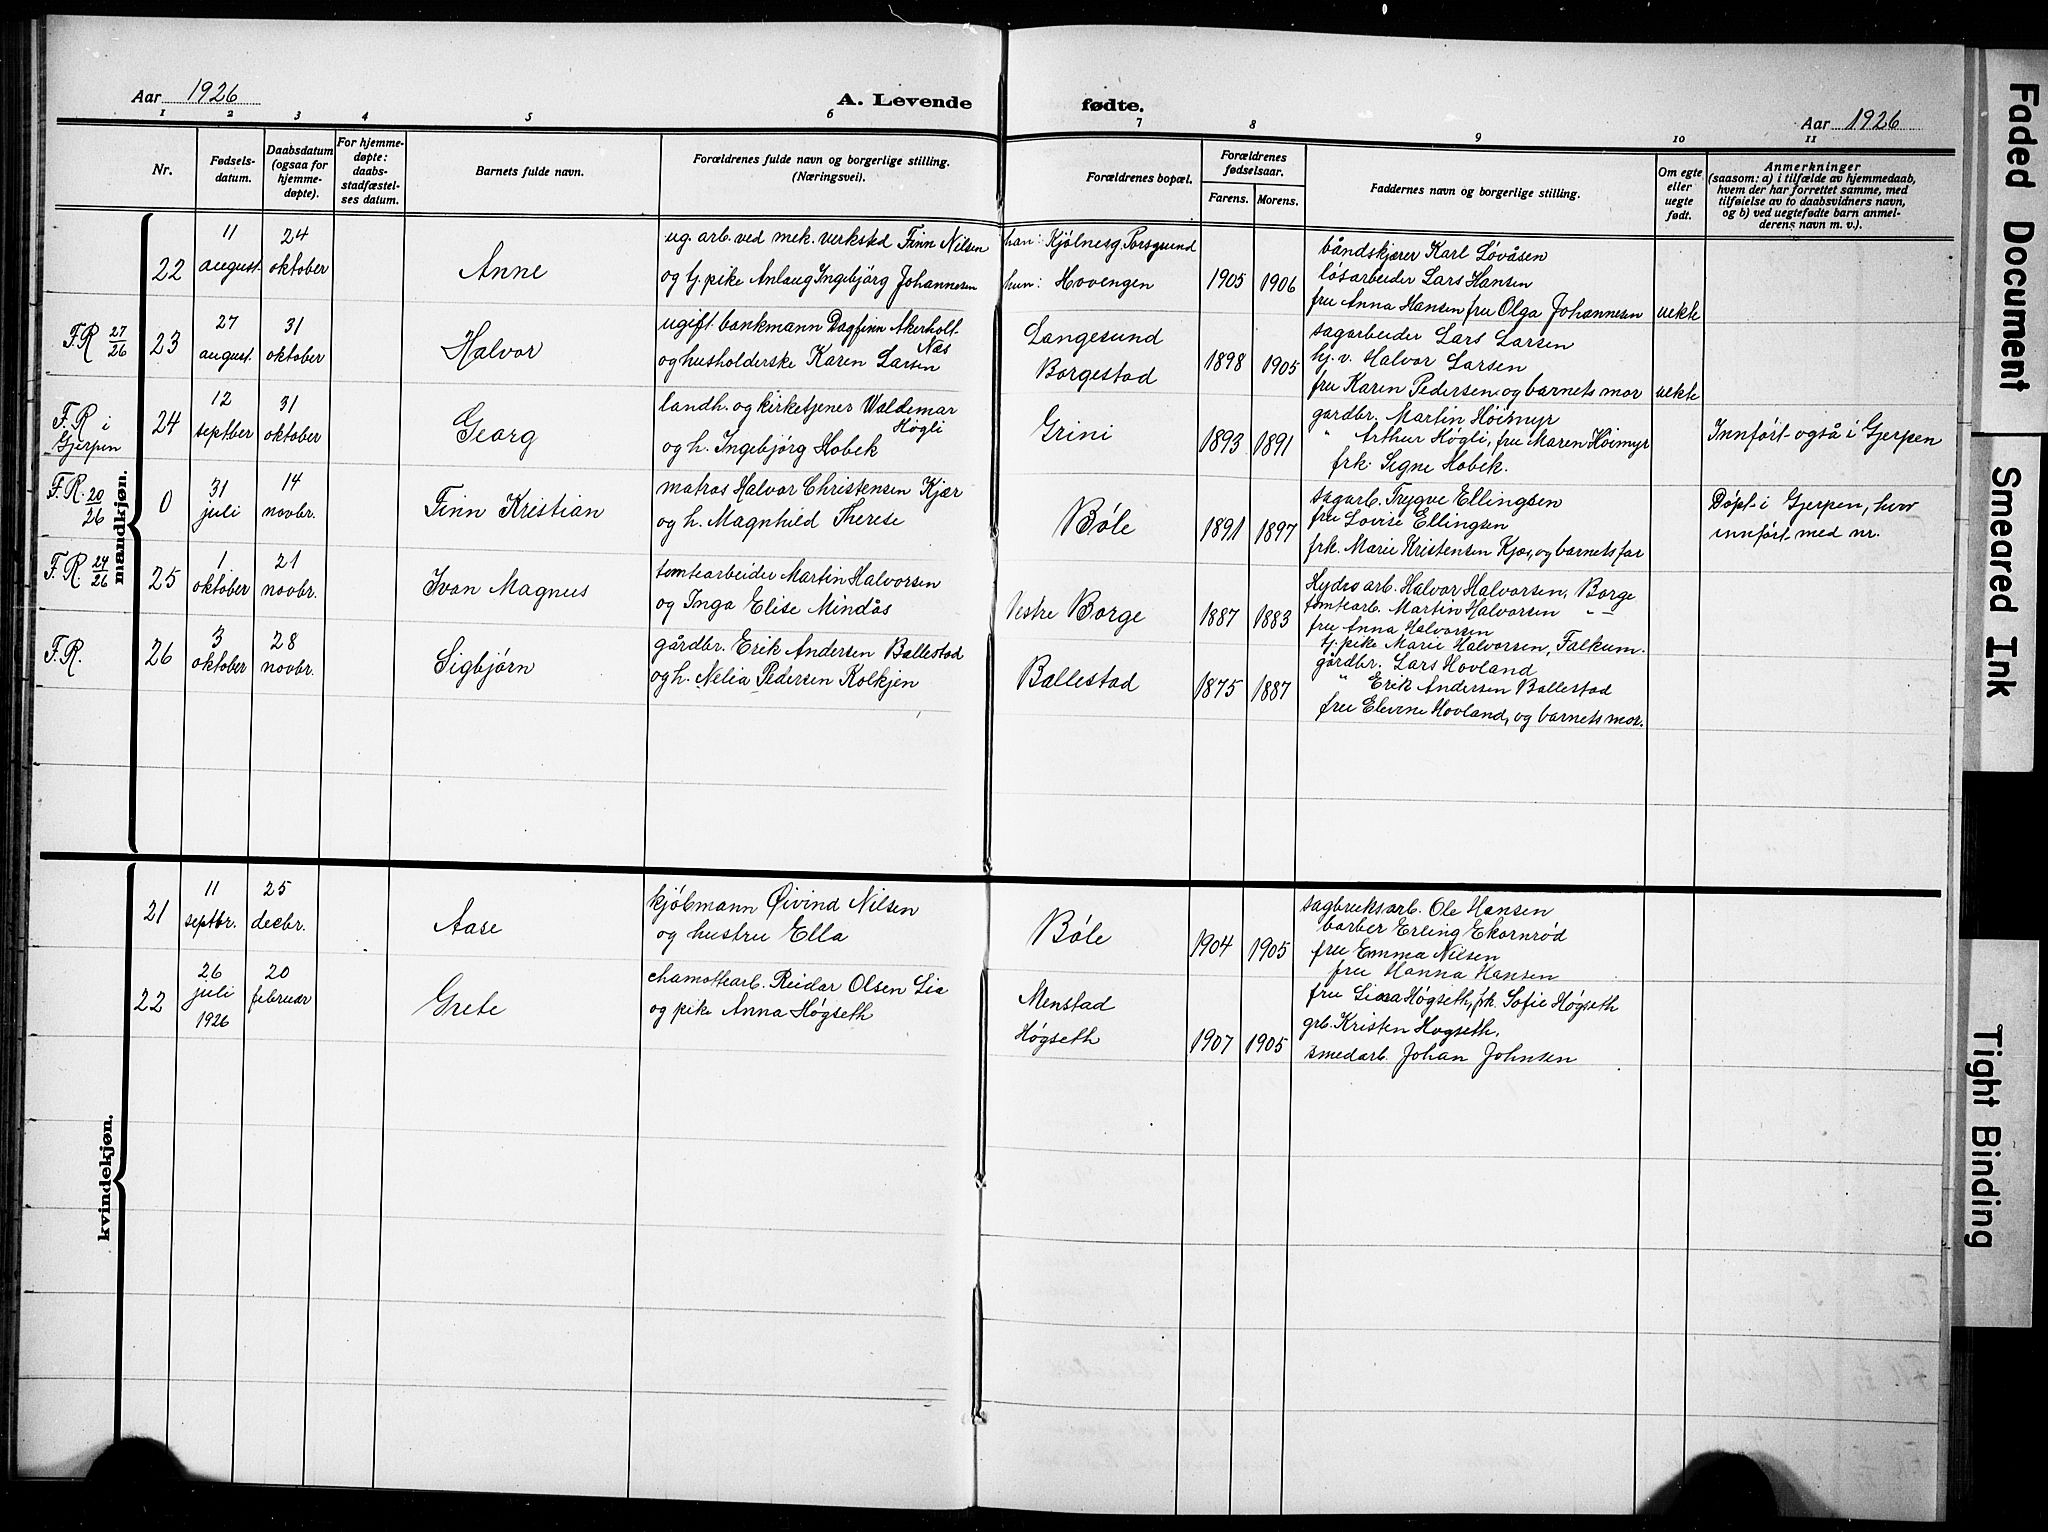 Aar 1926
A. Levende fødte.
Aar 1926
1 2 3 4 5 6 7 8 9 10 11
Nr.
Fødsels-
datum.
Daabsdatum
(ogsaa for
hjemme-
døpte).
For hjemme-
døpte:
daabs-
stadfæstel-
ses datum.
Barnets fulde navn.
Forældrenes fulde navn og borgerlige stilling.
(Næringsvei).
Forældrenes bopæl.
Forældrenes
fødselsaar.
Farens. Morens.
Faddernes navn og borgerlige stilling.
Om egte
eller
uegte
født.
Anmerkninger
(saasom: a) i tilfælde av hjemmedaab,
hvem der har forrettet samme, med
tilføielse av to daabsvidners navn,
og b) ved uegtefødte barn anmel-
derens navn m. v.).
mandkjøn.
22
11
august
24
oktober
Anne
ug. arb. ved mek. verksted Finn Nilsen
og tj. pike Anlaug Ingebjørg Johannesen
han: Kjølnesg. Porsgrund
hun: Hovengen
1905 1906
båndskjærer Karl Løvåsen
løsarbeider Lars Hansen
fru Anna Hansen fru Olga Johannesen
uekte
F.R 27/26
23
27
august
31
oktober
Halvor
ugift bankmann Dagfinn Akerholt-
Næs
og husholderske Karen Larsen
Langesund
Borgestad
1898 1905
sagarbeider Lars Larsen
hj. v. Halvor Larsen
fru Karen Pedersen og barnets mor
uekte
F.R i
Gjerpen
24
12
septber
31
oktober
Georg
landh. og kirketjener Waldemar
Høgli
og h. Ingebjørg Hobek
Grini
1893 1891
gardbr. Martin Høimyr
" Arthur Høgli, fru Maren Høimyr
frk. Signe Hobek.
Innført også i Gjerpen
F.R. 20/26
0
31
juli
14
novbr.
Finn Kristian
matros Halvor Christensen Kjær
og h. Magnhild Therese
Bøle
1891 1897
sagarb. Trygve Ellingsen
fru Lovise Ellingsen
frk. Marie Kristensen Kjær, og barnets far
Døpt i Gjerpen, hvor
innført med nr.
F.R. 24/26
25
1
oktober
21
novbr.
Ivan Magnus
tomtearbeider Martin Halvorsen
og Inga Elise Mindås
Vestre Borge
1887 1883
Hydro arb. Halvor Halvorsen, Borge
tomtearb. Martin Halvorsen "
fru Anna Halvorsen
tj. pike Marie Halvorsen, Falkum.
F.R.
26
3
oktober
28
novbr.
Sigbjørn
gårdbr. Erik Andersen Ballestad
og h. Nelia Pedersen Kolkjen
Ballestad
1875 1887
gårdbr. Lars Hovland
" Erik Andersen Ballestad
fru Elevine Hovland, og barnets mor.
kvindekjøn.
21
11
septbr.
25
decbr.
Aase
kjøbmann Øivind Nilsen
og hustru Ella
Bøle
1904 1905
sagbruksarb. Ole Hansen
barber Erling Ekornrød
fru Emma Nilsen
fru Hanna Hansen
22
26
juli
1926
20
februar
Grete
chamottearb. Reidar Olsen Lie
og pike Anna Høgseth
Menstad
Høgseth
1907 1905
fru Høgseth, frk. Sofie Høgseth
grb. Kristen Høgseth.
smedarb. Johan Johnsen
Faded Document
Smeared Ink
Tight Binding